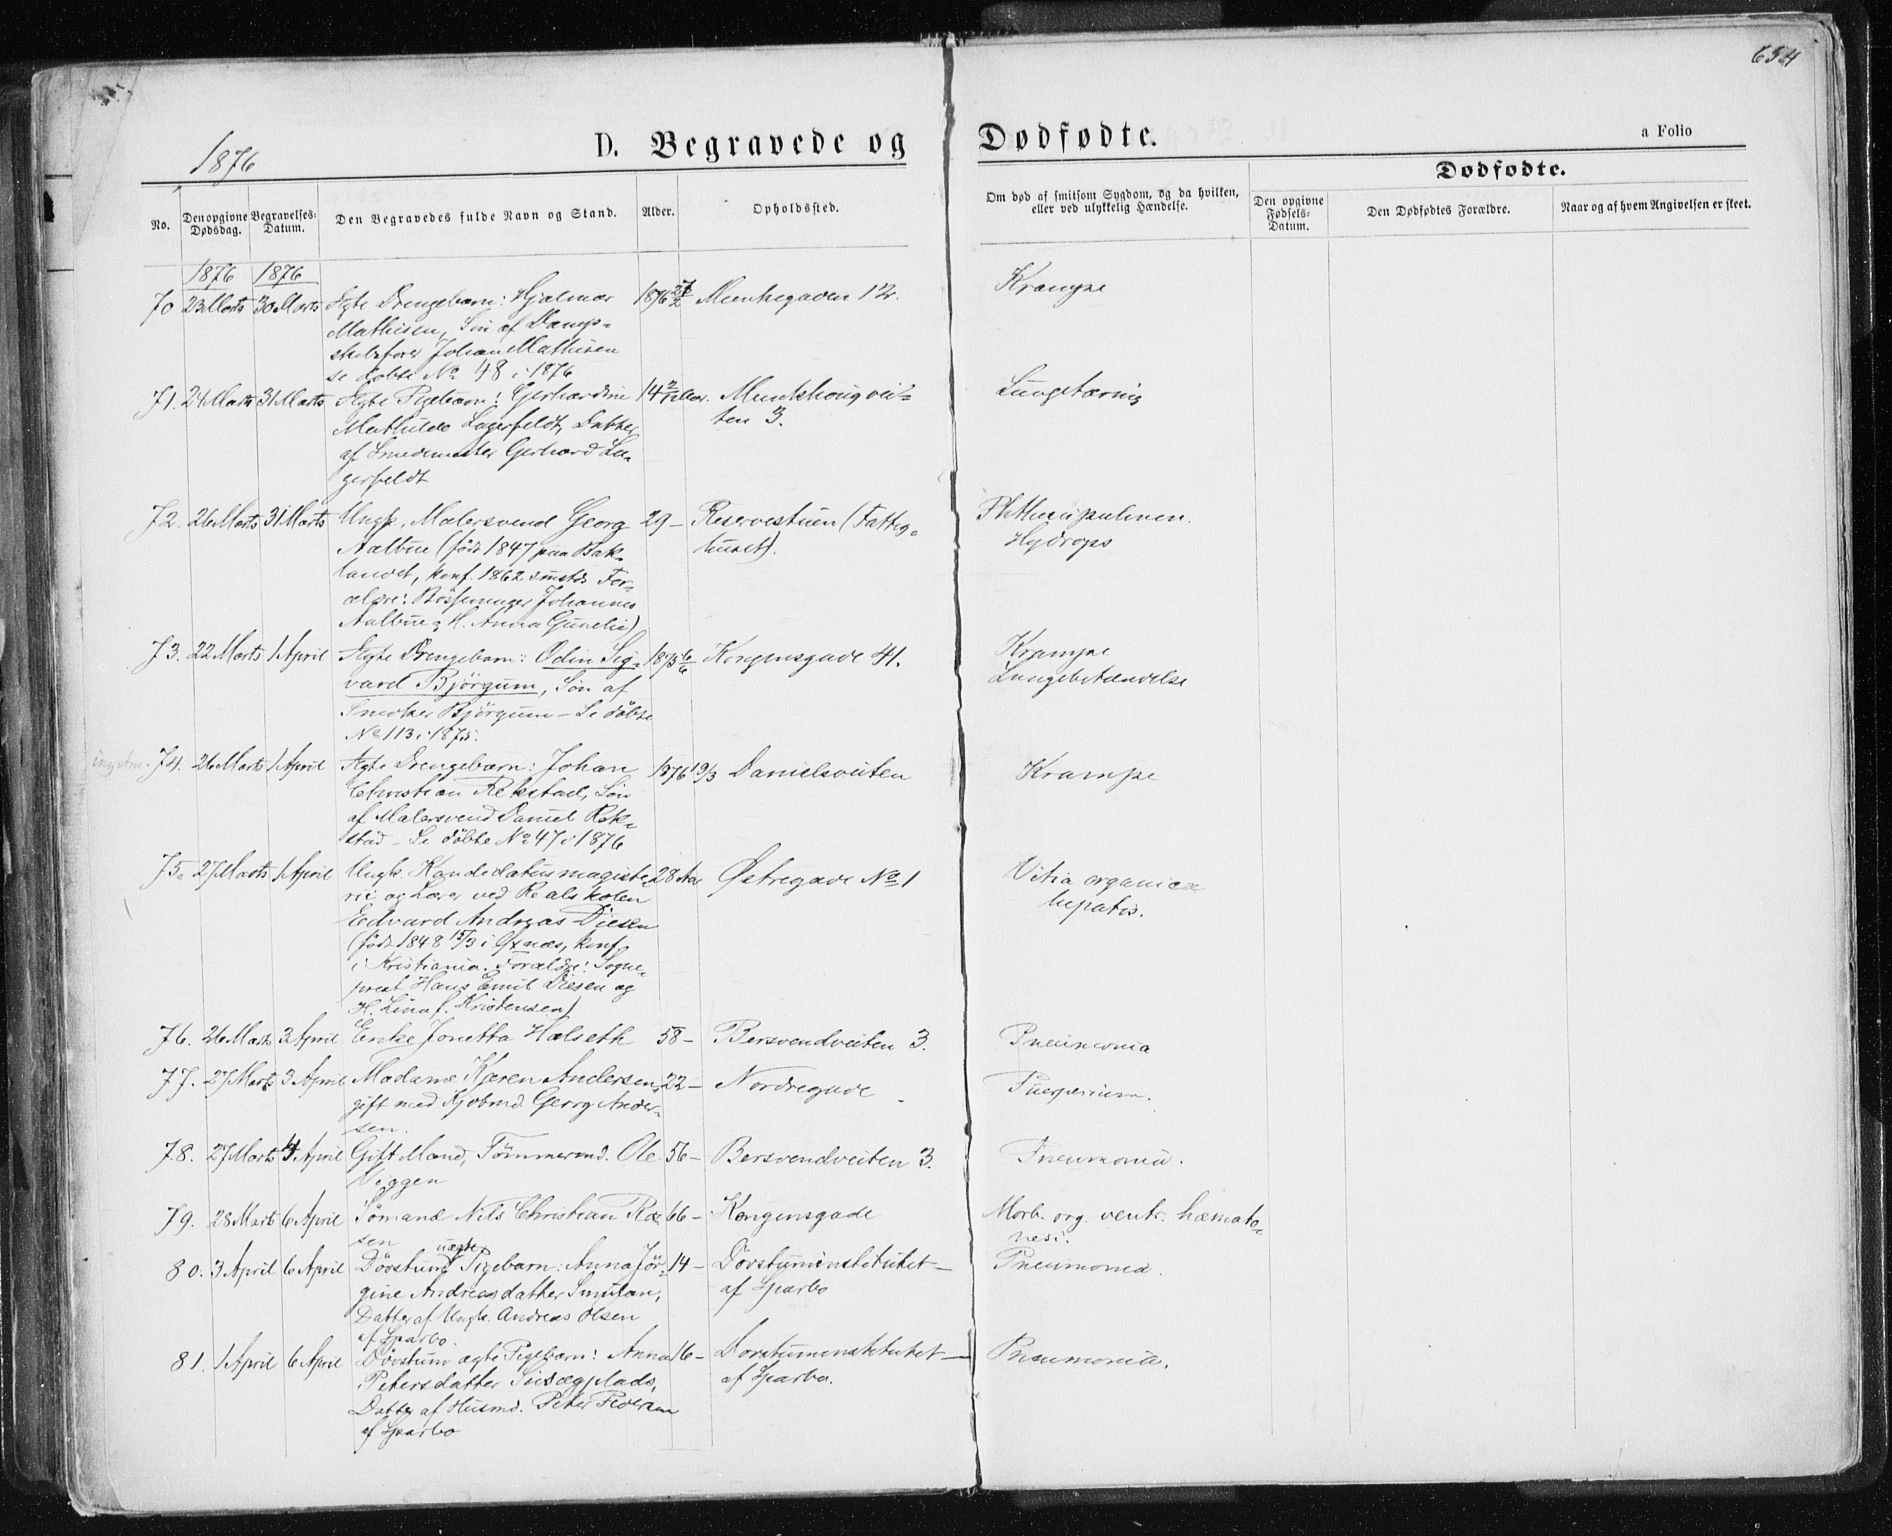 654
1876
D. Begravede og Dødfødte.
a Folio
No.
Den opgivne Dødsdag.
Begravelses-Datum.
Den Begravedes fulde Navn og Stand.
Alder.
Opholdssted.
Om død af smitsom Sygdom, og da hvilken,
eller ved ulykkelig Hændelse.
Dødfødte.
Den opgivne Fødsels-Datum.
Den Dødfødtes Forældre.
Naar og af hvem Angivelsen er skeet.
1876 1876
70 23 Marts 30 Marts Ægte Drengebarn: Hjalmar 1876 Munkegaden 12. Krampe
Mathisen, Søn af Damp-
skibsfører Johan Mathisen
se døbte No 48 i 1876
71. 24 Marts 31 Marts Ægte Pigebarn: Gerhardine 14 Munkhougvei-
ten 3. Lungetæring
Mathilde Lagerfeldt, Datter
af Smedmester Gerhard La-
gerfeldt
72. 26 Marts 31 Marts Ungk. Malersvend Georg 29 – Reservestuen (Fattig-
huset). Hydrops
Aalbue (født 1847 paa Bak-
landet, konf. 1862 smstds For-
ældre: Bøssemager Johannes
Aalbue og H. Anna Gunelie)
73. 22 Marts 1 April Ægte Drengebarn: Odin Sig- 1875 6/6 Kongensgade 41. Krampe
Lungebetændelse
vard Bjørgum, Søn af
Snedker Bjørgum – Se døbte
No 113 i 1875.
74. 26 Marts 1 April Ægte Drengebarn: Johan 1876 19/3 Danielsveiten Krampe
Christian Rekstad, Søn
af Malersvend Daniel Rek-
stad – Se døbte No 47 i 1876
75. 27 Marts 1 April Ungk. Kandidatus magiste- 28 Aar Østregade No 1 Vitia organica
hepatis.
rii og Lærer ved Realskolen
Edvard Andreas Diesen
(født 1848 15/3 i Øxnæs, konf.
i Kristiania. Forældre: Sogne-
prest Hans Emil Diesen og
H. Lina f. Kristensen)
76. 26 Marts 3 April Enke Jonetta Halseth 58 – Bersvendveiten 3. Pneumonia
77. 27 Marts 3 April Madame Karen Andersen, 22 – Nordregade Puerperium.
gift med Kjøbmd. Georg Ander-
sen.
78. 27 Marts 4 April Gift Mand, Tømmermd. Ole 56 – Bersvendveiten 3. Pneumonia.
Viggen
79. 28 Marts 6 April Sømand Nils Christian Ro- 66 – Kongensgade Morb. org. ventr. hæmate-
mesi.
sen
80. 3 April 6 April Døvstum uægte Pigebarn: Anna Jør- 14 – Døvstuminstitutet – Pneumonia.
af Sparbo
gine Andreasdatter Smulan,
Datter af Ungk. Andreas Olsen
af Sparbo.
81. 1 April 6 April Døvstum ægte Pigebarn: Anna 16 – Døvstuminstitutet – Pneumonia.
af Sparbo.
Petersdatter
Datter af Husmd. Peter Pedersen
af Sparbo